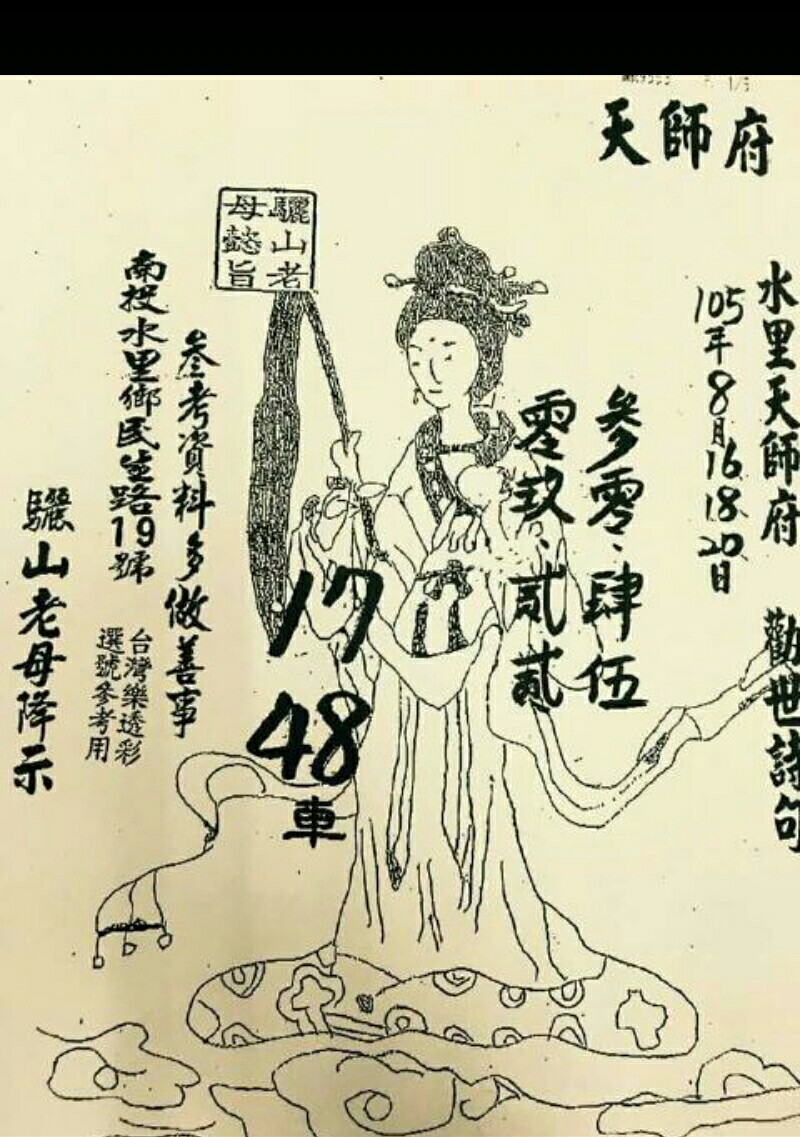 天師府
水里天師府 勸世詩句
105年8月16.18.20日
參零、肆伍
零玖、貳貳
17
48
車
驪山老
母懿旨
參考資料多做善事
南投水里鄉民生路19號
台灣樂透彩
選號參考用
驪山老母降示